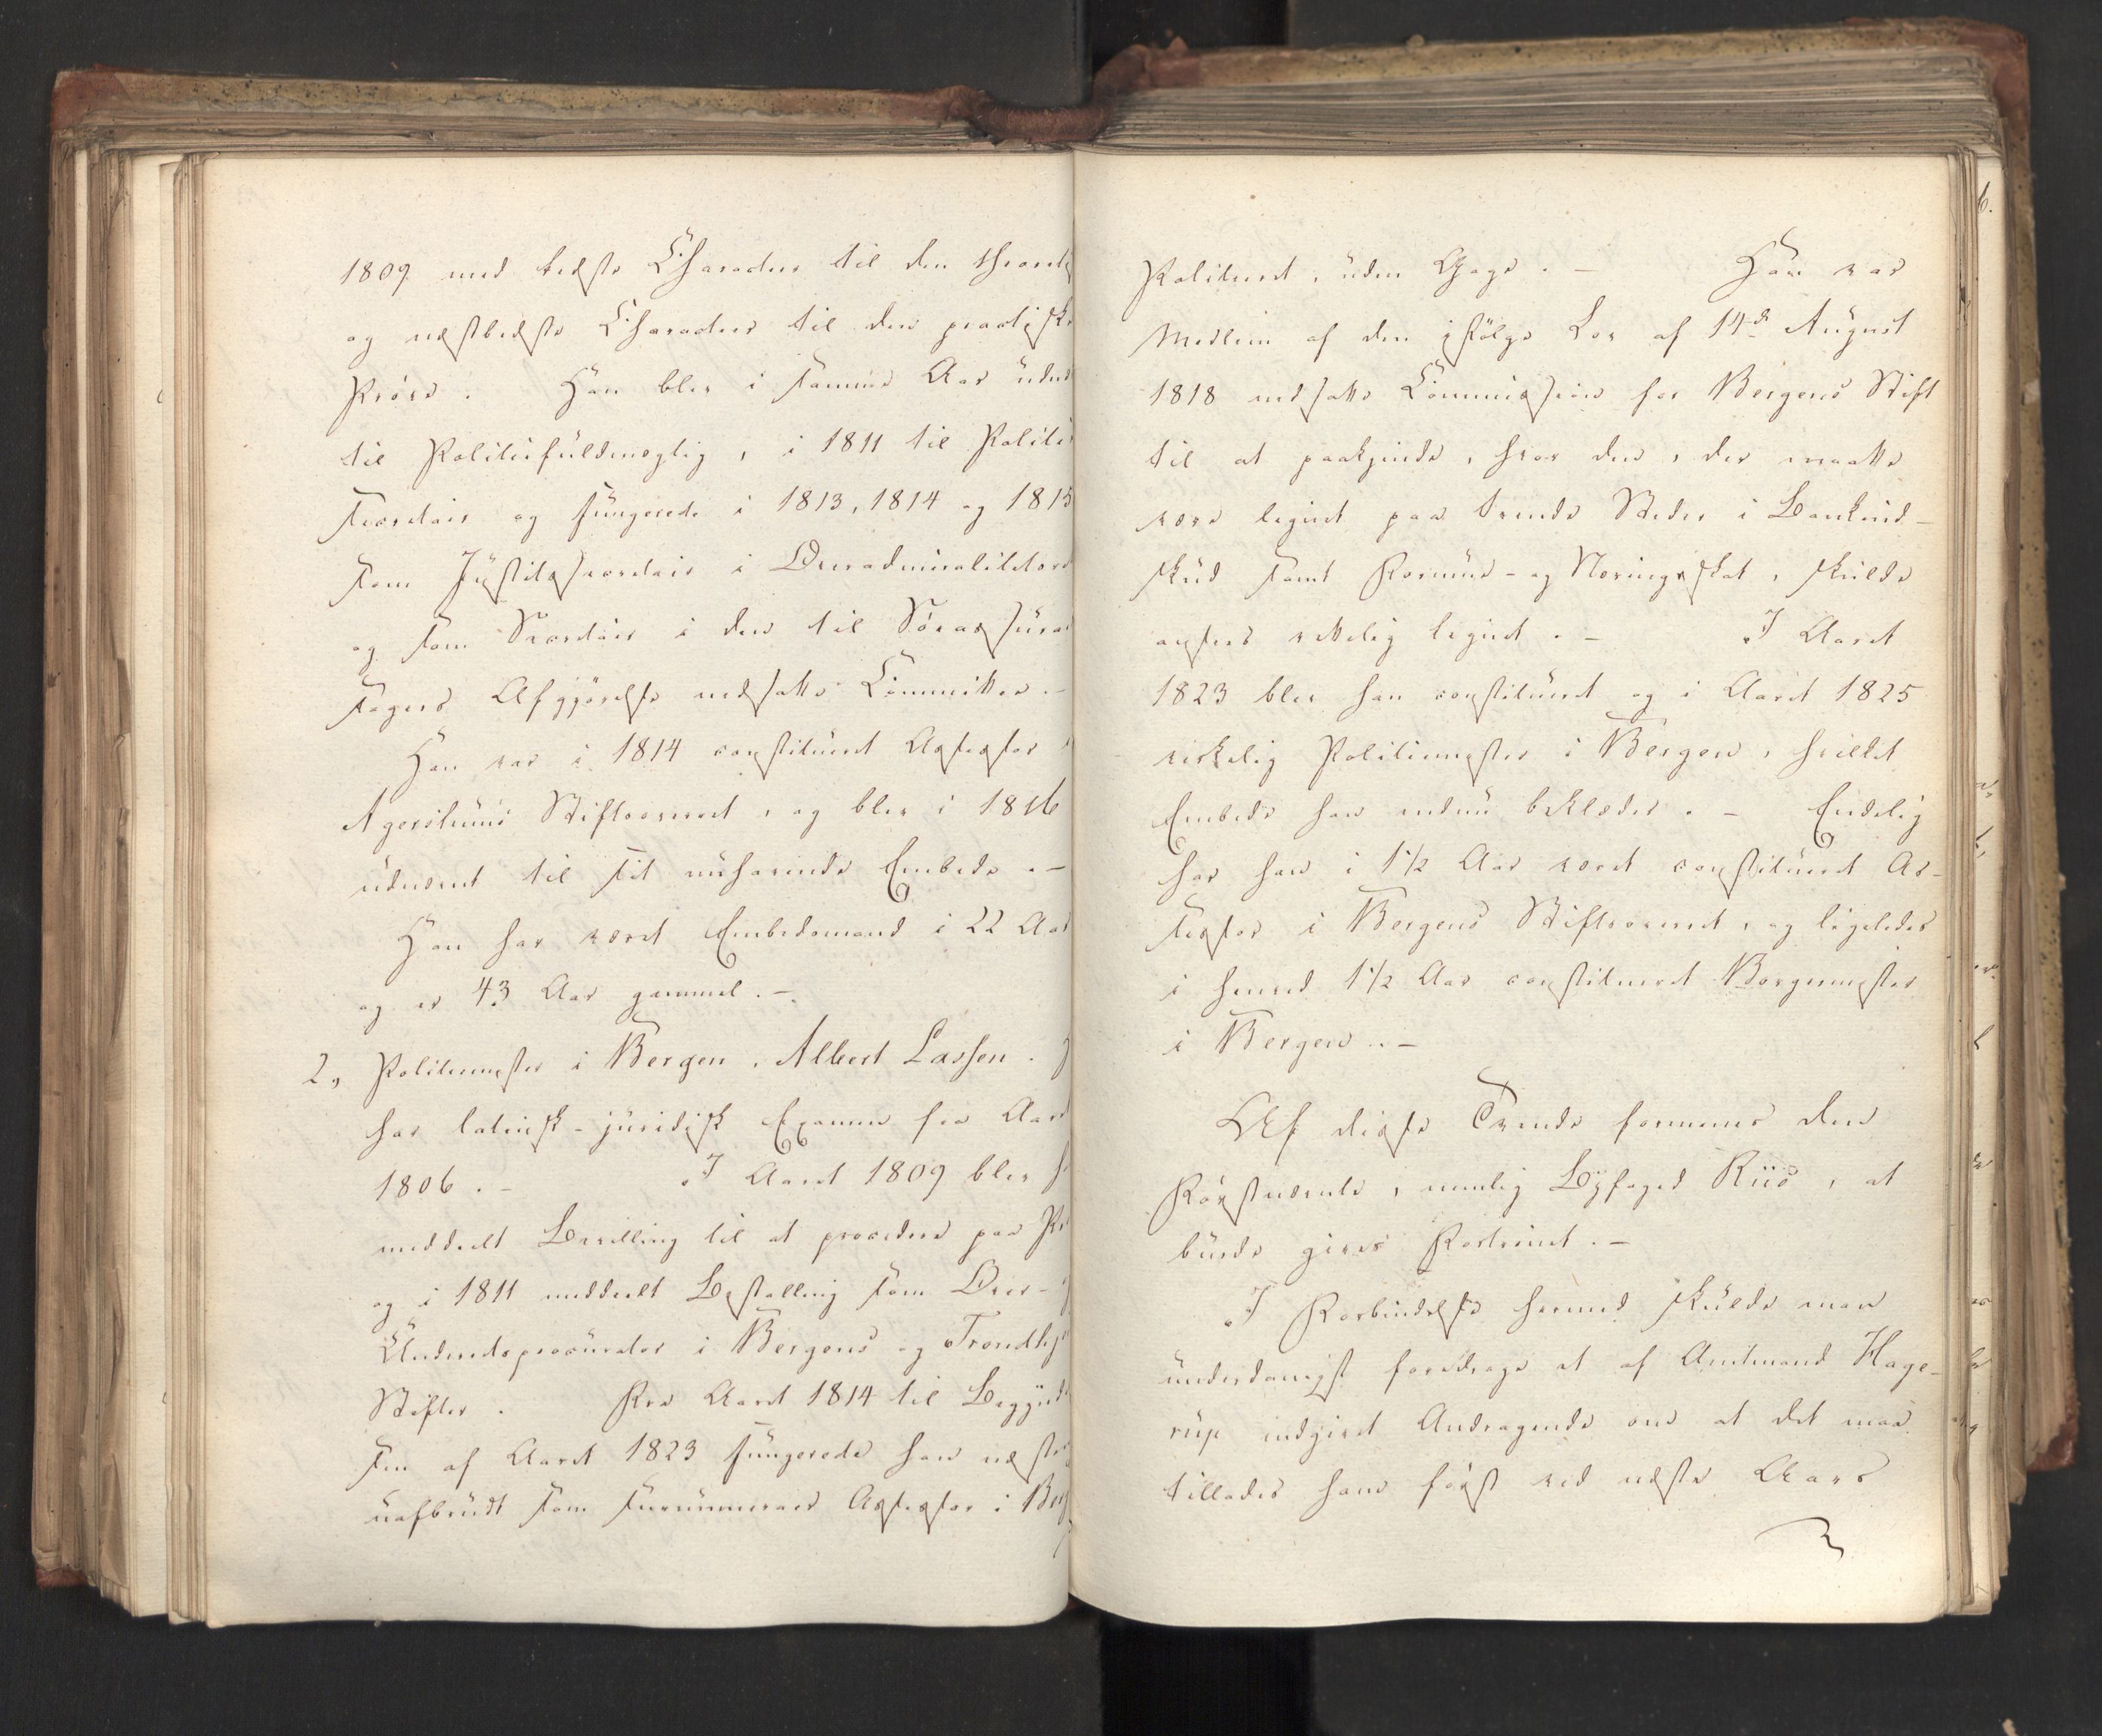 1809 med bedste Characteer til den theoret
og næstbedste Characteer til den practiske
Prøve. Han blev i samme Aar udnæ
til Politiefuldmægtig, i 1811 til Politie
secretair og fungerede i 1813, 1814 og 1815
som Justitssecretair i Overadmiralitetsre
og som Secretair i den til Søeassuran
sagers Afgjørelse nedsatte Committee. –
Han var i 1814 constitueret Assessor i
Agershuus Stiftsoverret, og blev i 1816
udnævnt til sit nuhavende Embede. –
Han har været Embedsmand i 22 Aar
og er 43 Aar gammel. –
2, Politiemester i Bergen, Albert Lassen. H
har latinsk-juridisk Examen fra Aaret
1806. – I Aaret 1809 blev h
meddeelt Bevilling til at procedere paa Pr
og i 1811 meddeelt Bestalling som Over- og
Underretsprocurator i Bergens og Trondhj
Stifter. Fra Aaret 1814 til Begynd
sen af Aaret 1823 fungerede han næsten
uafbrudt som surnumerair Assessor i Berg
Politieret, uden Gage. – Han var
Medlem af den ifølge Lov af 14de August
1818 nedsatte Commission for Bergens Stift
til at paakjende, hvor den, der maatte
være lignet paa trende Steder i Bankind-
skud samt Formue- og Næringsskat, skulde
ansees rettelig lignet. – I Aaret
1823 blev han constitueret og i Aaret 1825
virkelig Politiemester i Bergen, hvilket
Embede han endnu beklæder. – Endelig
har han i 1 1/2 Aar været constitueret As-
sessor i Bergens Stiftsoverret, og ligeledes
i henved 1 1/2 Aar constitueret Borgermester
i Bergen. –
Af disse Trende formenes den
Førstnævnte, nemlig Byfoged Riis, at
burde gives Fortrinet. –
I Forbindelse hermed skulde man
underdanigst foredrage et af Amtmand Hage-
rup indgivet Andragende om at det maa
tillades ham først ved næste Aars